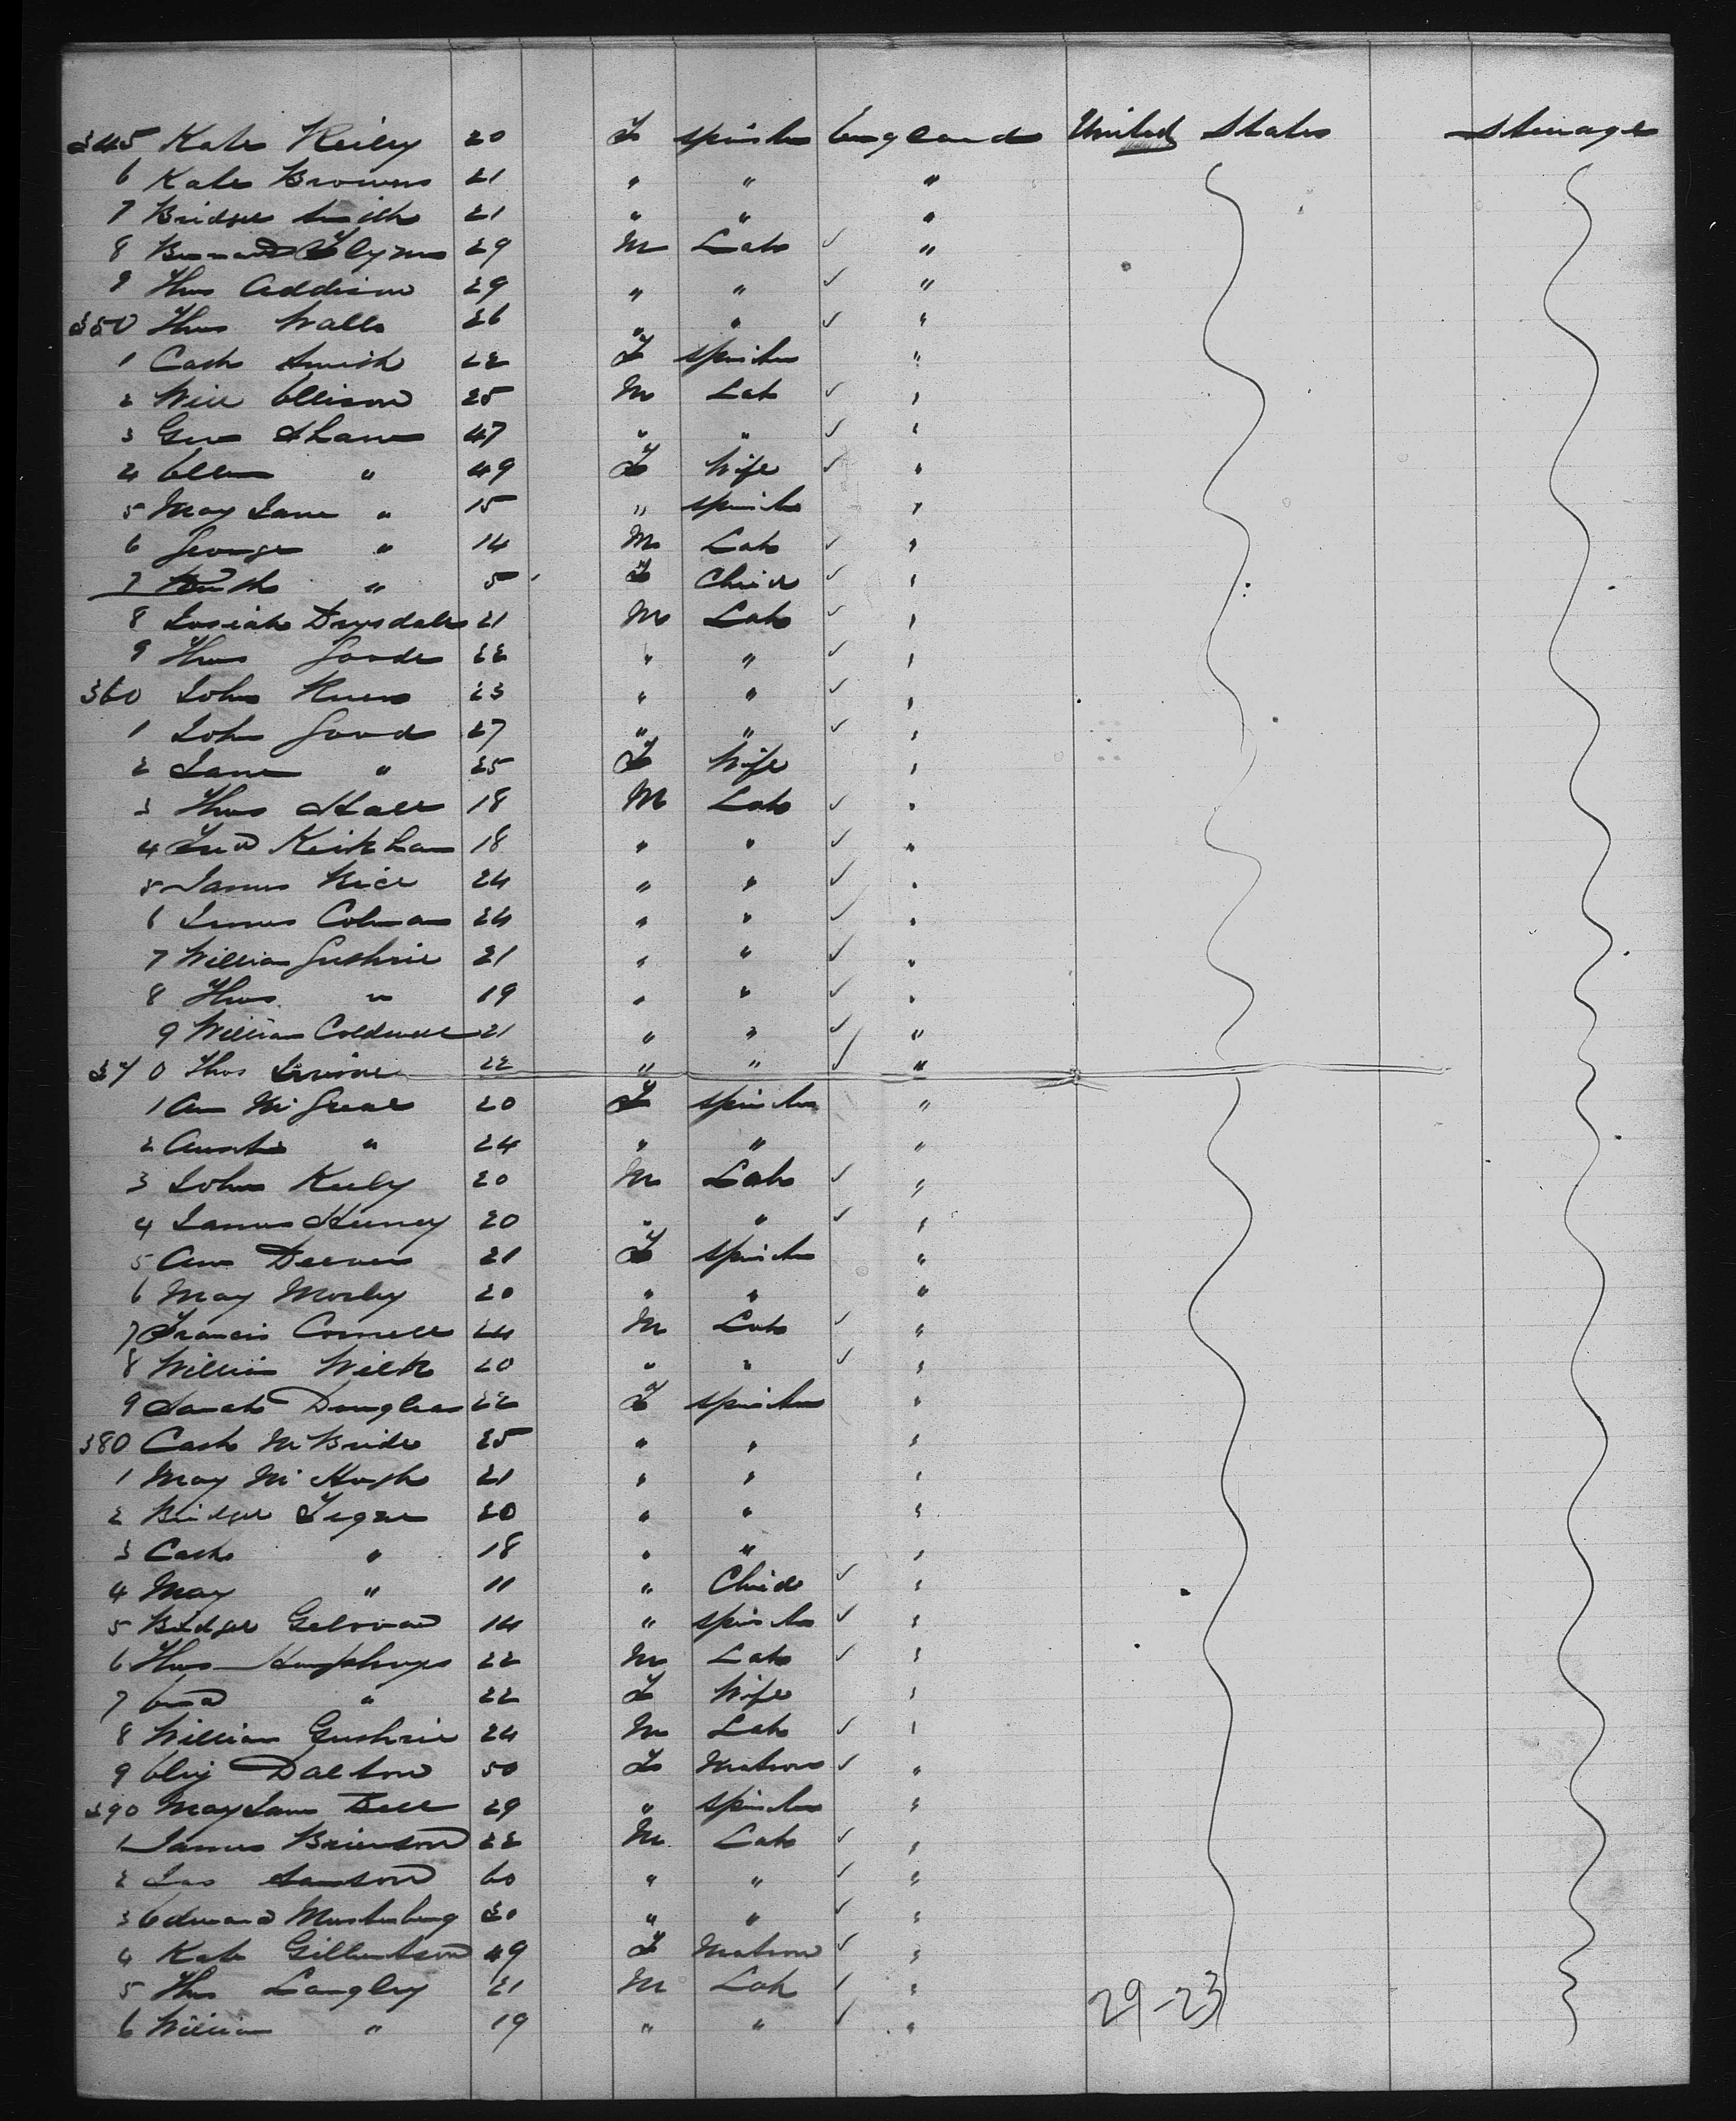 345 Kate Reiley 20 F spinster England United States steerage
6 Kate Browns 21 " " "
7 Bridget Smith 21 " " "
8 Bernard Flynn 29 M Lab ✓ "
9 Thos Addison 29 " " ✓ "
350 Thos Walls 26 " " ✓ "
1 Cath Smith 22 F spinster "
2 Will Ellison 25 M Lab ✓ "
3 Geo Shaw 47 " " ✓ "
4 Ellen " 49 F Wife ✓ "
5 May Jane " 15 " spinster "
6 George " 14 M Lab ✓ "
7 Ruth " 5 F Child ✓ "
8 Josiah Drysdale 21 M Lab ✓ "
9 Thos Goode 22 " " ✓ "
360 John 23 " " ✓ "
1 John Good 27 " " ✓ "
2 Jane " 25 F Wife "
3 Thos Hall 18 M Lab ✓ "
4 Fred Kirkham 18 " " ✓ "
5 James Rice 24 " " ✓ "
6 James Colman 24 " " ✓ "
7 William Guthrie 21 " " ✓ "
8 Thos " 19 " " ✓ "
9 William Coldwell 21 " " ✓ "
370 Thos Irvine 22 " " ✓ "
1 Ann McGreal 20 F spinster "
2 " 24 " " "
3 John Keely 20 M Lab ✓ "
4 James Heeney 20 " " ✓ "
5 Ann 21 F spinster "
6 May Morley 20 " " "
7 Francis Cornell 24 M Lab ✓ "
8 William Welk 20 " " ✓ "
9 Sarah Douglas 22 F spinster "
380 Cath McBride 25 " " "
1 May McHugh 21 " " "
2 Bridget Tegue 20 " " "
3 Cath " 18 " " "
4 May " 11 " Child ✓ "
5 Bridget 14 " spinster ✓ "
6 Thos Humphreys 22 M Lab ✓ "
7 " 22 F Wife "
8 William Guthrie 24 M Lab ✓ "
9 Eliz Dalton 50 F Matron ✓ "
390 May Jane Bell 29 " spinster "
1 James Brienson 22 M Lab ✓ "
2 Jas Samson 60 " " ✓ "
3 Edward 30 " " ✓ "
4 Kate Gilbertson 49 F Matron ✓ "
5 Thos Langley 21 M Lab ✓ "
6 William " 19 " " ✓ "
29-23